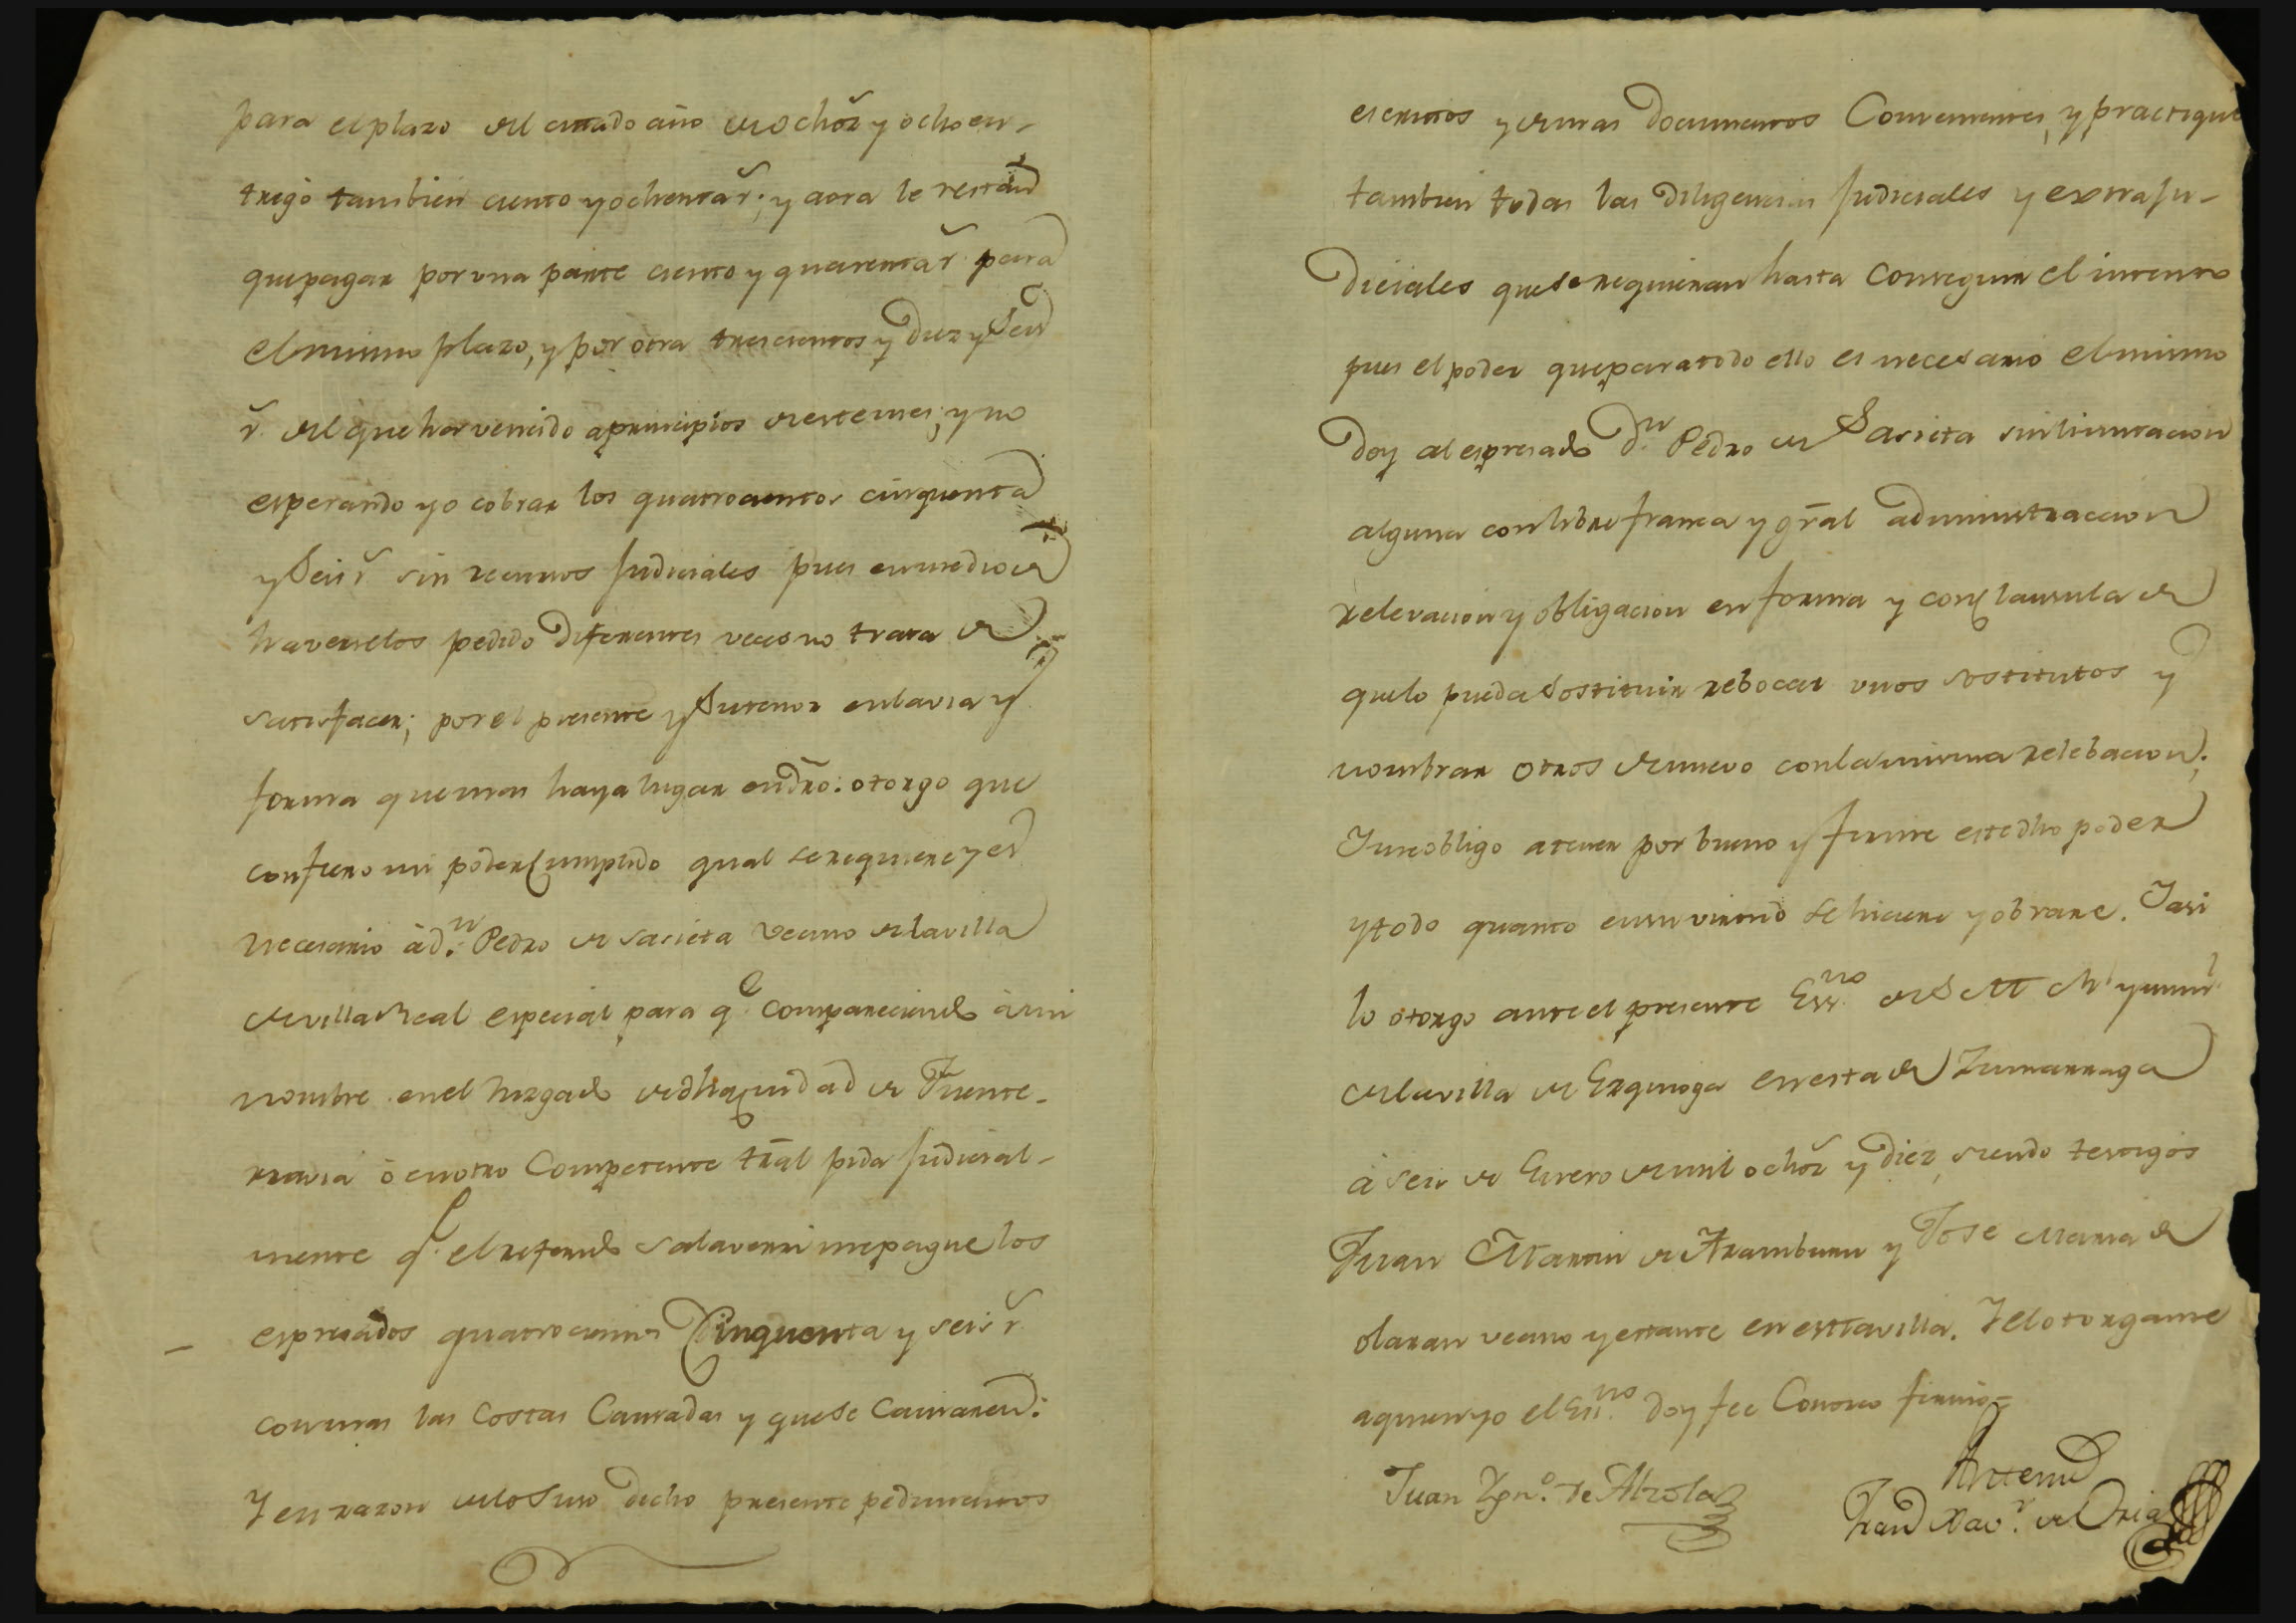 para el plazo del citado año de ochoz. y ocho en-
tregó tambien ciento y ochenta r.; y aora le restan
que pagar por una parte ciento y quarenta r. para
el mismo plazo, y por otra trescientos y diez y seis
r. del que ha vencido a principios de este mes; y no
esperando yo cobrar los quatrocientos cinquenta
y seis r. sin recursos judiciales pues en medio de
haverselos pedido diferentes veces no trata de
satisfacer; por el presente y su tenor en la via y
forma que mas haya lugar en dro: otorgo que
confiero mi poder cumplido qual se requiere y es
necesario à dn. Pedro de Sasieta vecino de la villa
de villa Real especial para qe. compareciendo à mi
nombre en el Juzgado de dha ciudad de Fuente-
rravia ò en otro Competente tral pida judicial-
mente qe. el referido Salaverri me pague los
espresados quatrocientos Cinquenta y seis r.
con mas las Costas Causadas y que se causaren:
Y en razon de lo suso dicho presente pedimentos
escritos y demas documentos Convenientes, y practique
tambien todas las diligencias judiciales y extraju-
diciales que se requieran hasta conseguir el intento
pues el poder que para todo ello es necesario el mismo
doy al espresado Dn. Pedro de Sasieta sin limitacion
alguna con libre franca y gral administracion
relevacion y obligacion en forma y con clausula de
que lo pueda sostituir rebocar unos sostitutos y
nombrar otros de nuevo con la misma relebacion;
Y me obligo a tener por bueno y firme este dho poder
y todo quanto en su virtud se hiciere y obrare. Y asi
lo otorgo ante el presente Essno. de S M Rl. y numl.
de la villa de Ezquioga en esta de Zumarraga
à seis de Enero de mil ochoz. y diez, siendo testigos
Juan Martin de Aramburu y Jose Maria de
Olaran vecino y estante en esta villa. Y el otorgante
a quien yo el Essno. doy fee Conozco firmó=
Juan Ygno. de Alzola
Ante mi
Fran Xavr. de Oria